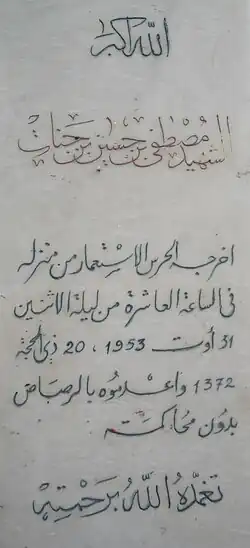 الله أكبر
الشهيد مصطفى بن حسين بن جنات
اخرجه الحرس الاستعمار من منزله
في الساعة العاشرة من ليلة الاثنين
31 أوت 1953، 20 ذي الحجة
1372 واعدموه بالرصاص
بدون محاكمته
تغمده الله برحمته